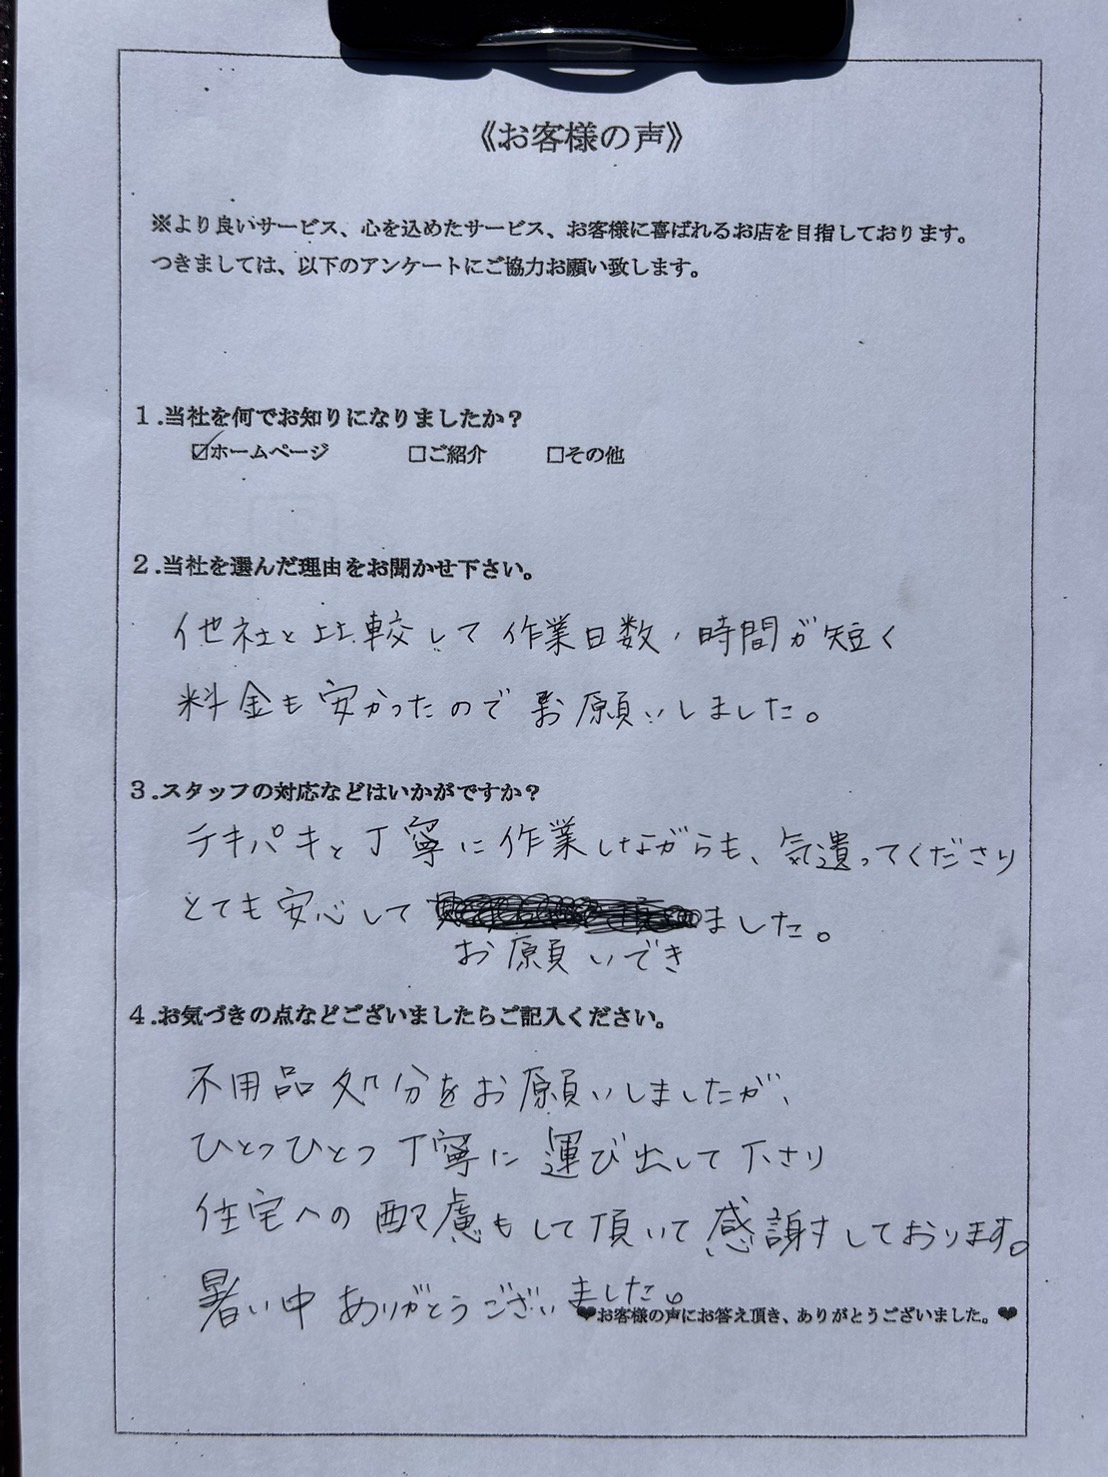 《お客様の声》
※より良いサービス、心を込めたサービス、お客様に喜ばれるお店を目指しております。
つきましては、以下のアンケートにご協力お願い致します。
1.当社を何でお知りになりましたか？
☑ホームページ　□ご紹介　□その他
2.当社を選んだ理由をお聞かせ下さい。
他社と比較して作業日数、時間が短く
料金も安かったのでお願いしました。
3.スタッフの対応などはいかがですか？
テキパキと丁寧に作業しながらも、気遣ってくださり
とても安心して ました。
お願いでき
4.お気づきの点などございましたらご記入ください。
不用品処分をお願いしましたが、
ひとつひとつ丁寧に運び出して下さり
住宅への配慮もして頂いて感謝しております。
暑い中ありがとうございました。
♥お客様の声にお答え頂き、ありがとうございました。♥